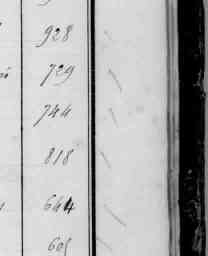 928
729
744
818
644
605